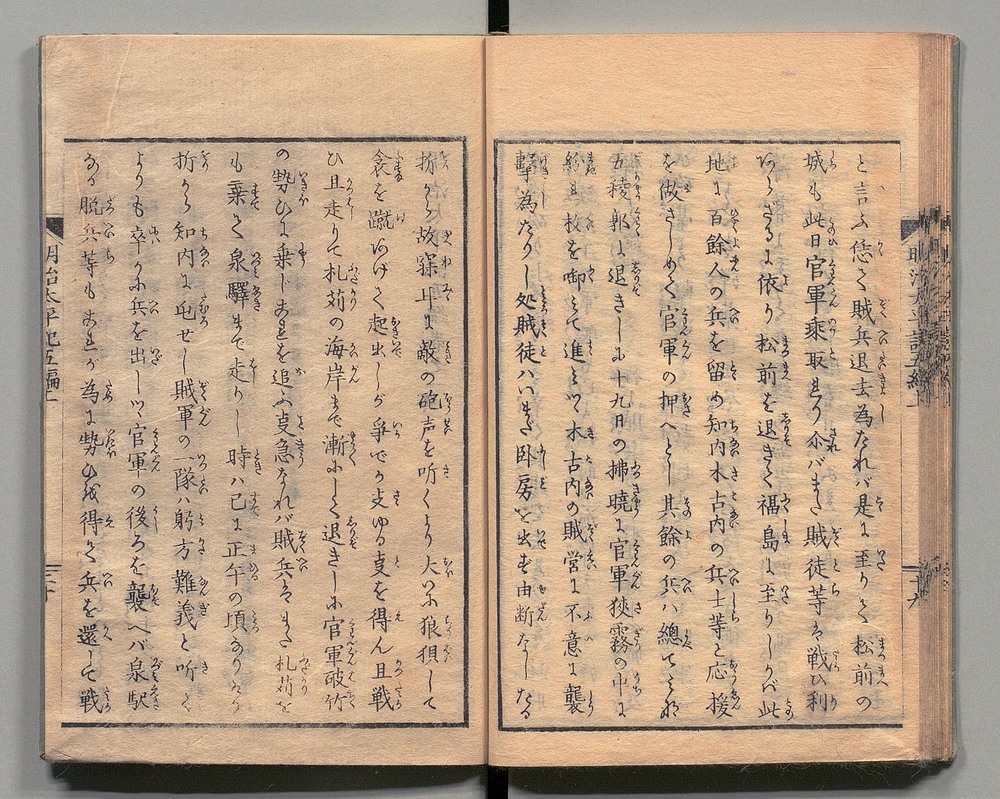 と言ふ恁て賊兵退去為たれバ是に至りて松前の
城も此日官軍乗取れり尓バまた賊徒等も戦ひ利
あらざるに依り松前を退きて福島に至りしが此
地に百餘人の兵を留め知内木古内の兵士等と応援
を做さしめて官軍の押へとし其餘の兵ハ總て
五稜郭に退きしに十九日の拂曉に官軍狭霧の中に
紛れ枚を啣て進ミつゝ木古内の賊営に不意に襲
撃為たりし処賊徒ハいまだ臥房を出も由断なしたる
折から故寐耳に敵の砲声を听くより大いに狼狽して
衾を蹴あけて起出しが争でか支ゆる支を得ん且戦
ひ且走りて札苅の海岸まで漸にして退きしに官軍破竹
の勢ひに乗じ是を追ふ支急なれバ賊兵等また札苅を
も棄て泉驛まで走りし時ハ已に正午の頃なりけり
折から知内に屯せし賊軍の一隊ハ躬方難義と听て
よりも卒かに兵を出しつゝ官軍の後ろを襲へバ泉駅
なる脱兵等も是が為に勢ひを得て兵を還して戦
明治太平記五編上